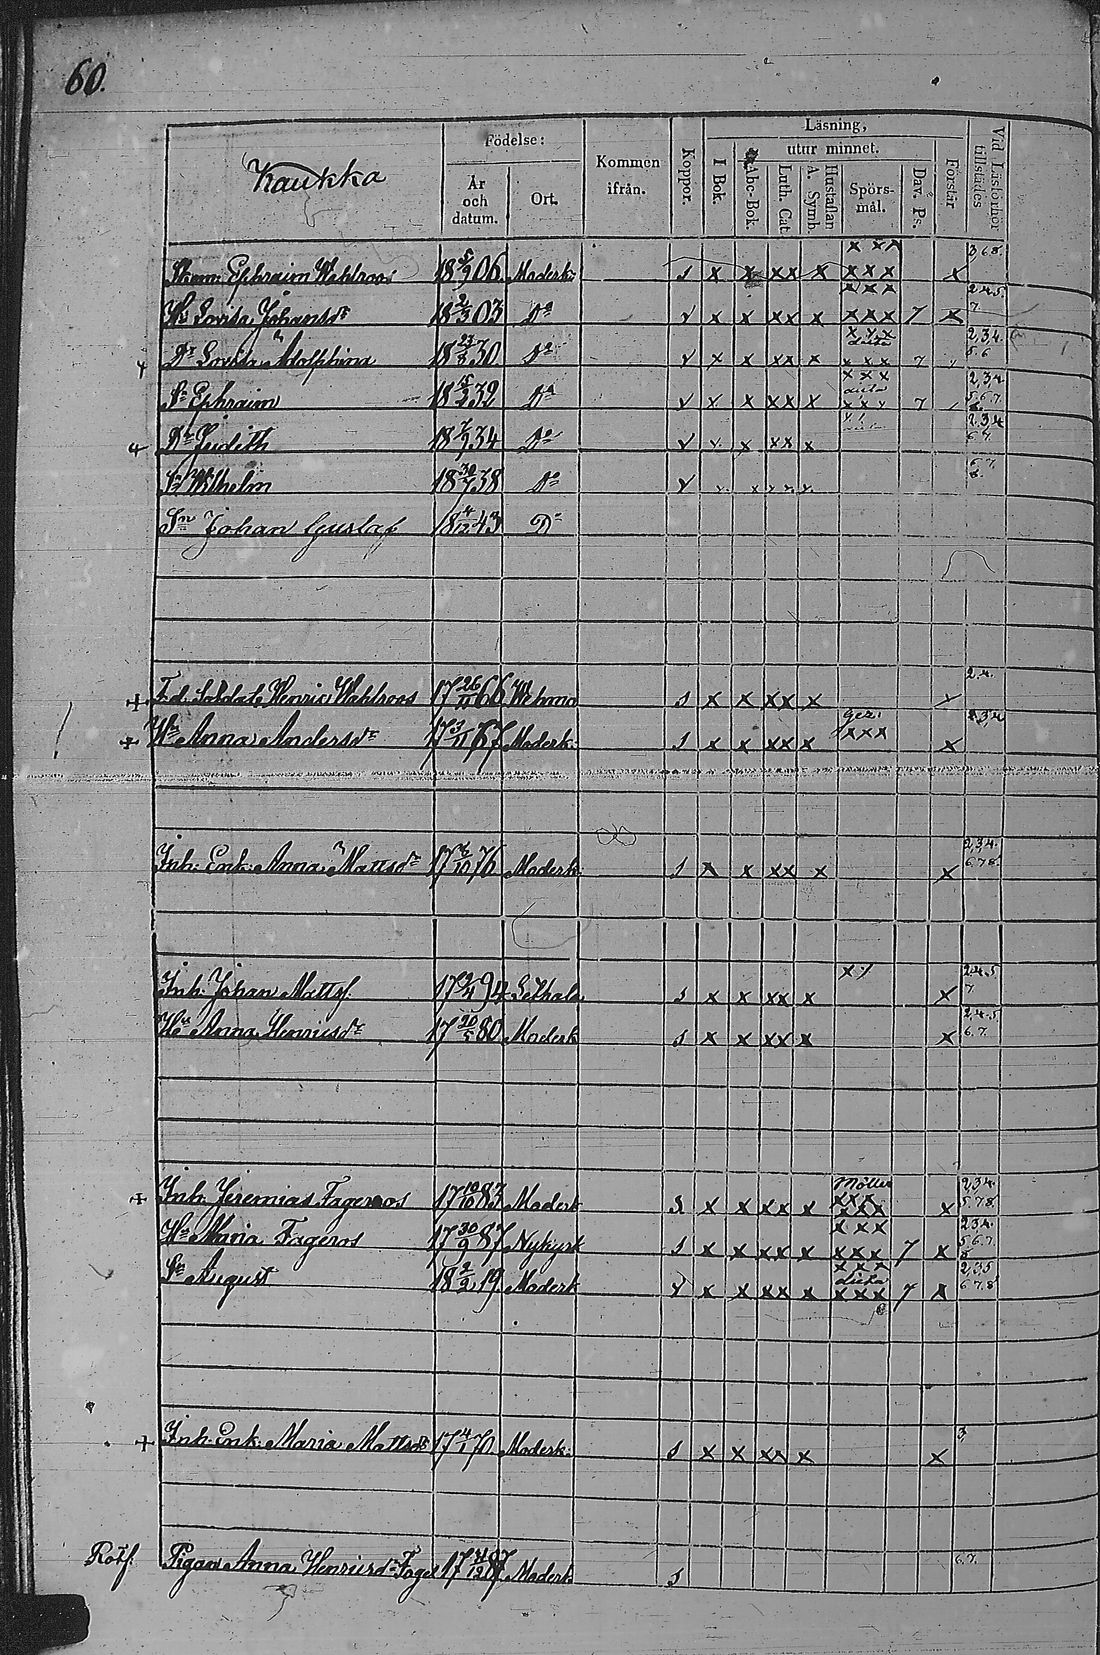 60.
Kaukka
Födelse:
År och datum.
Ort.
Kommen ifrån.
Koppor.
Läsning,
utur minnet.
I Bok.
Abc-Bok.
Luth. Cat.
Hustaflan
A. Symb.
Spörs-mål.
Dav. Ps.
Förstår
Vid Läsförhör tillstädes
Ephraim Wahlroos 18 5/9 06 Moderk: s x x xx x xxx x 3,6 8.
H: Lovisa Johansdr 18 2/3 03 Do v x x xx x xxx 7 x 2.4.5. 7.
Dr Lovisa Adolphina 18 30. Do v x x xx x xxx 7 2,3,4. 5.6
Sn Ephraim 18 32 Do v x x xx x xxx 7 2,3,4 5.6.7. 8.
Dr Judith 18 34 Do v x x xx x 2.3,4 6.7.
Sn Wilhelm 18 30/7 38 Do v x x x x x 6.7. 8.
Sn Johan Gustaf 18 4/12 43 Do
F.d. Soldat. Henric Wahlroos 17 26/11 66 Wehmo s x x xx x x 2.4.
Hu Anna Andersdr 17 3/11 67 Moderk. s x x xx x xxx x 2 3 4
Inh. Enk. Anna Mattsdr 17 6/10 76 Moderk s x x xx x x 2,3,4. 6.7.8.
Inh. Johan Mattss. 17 94 Lethala s x x xx x x 2.4.5 7
Hu Anna Henricsdr 17 20/5 80 Moderk s x x xx x x 2.4.5 6.7.
Inh. Jeremias Fageroos 17 10/10 83 Moderk s x x xx x Möller xxx xxx x 2,3 4. 5.7.8.
Hu Maria Fageros 17 30/9 87 Nykyrk s x x xx x xxx xxx 7 x 2 3 4. 5 6.7. 8
Sn August 18 2/2 19. Moderk v x x xx x xxx dicta xxx 7 x 2,3 5 6.7.8
Inh. Enk. Maria Mattsdr 17 4/1 70 Moderk. s x x xx x x 3,
Rotf. Pigan Anna Henricsdr Fagel 17 87 Moderk s 6.7.